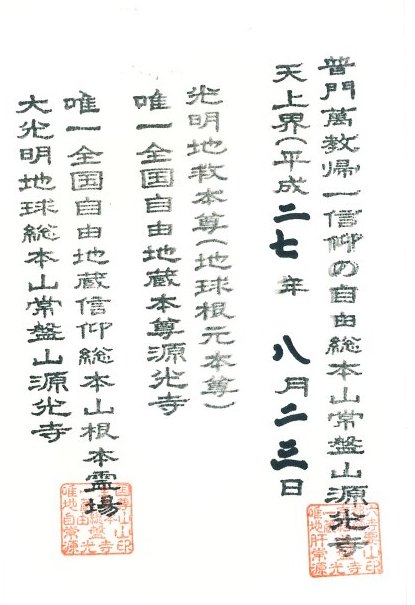 普門萬教帰一信仰の自由総本山常盤山源光寺
天上界(平成二七年 八月二三日
光明地救本尊(地球根元本尊)
唯一全国自由地蔵本尊源光寺
唯一全国自由地蔵信仰総本山根本霊場
大光明地球総本山常盤山源光寺